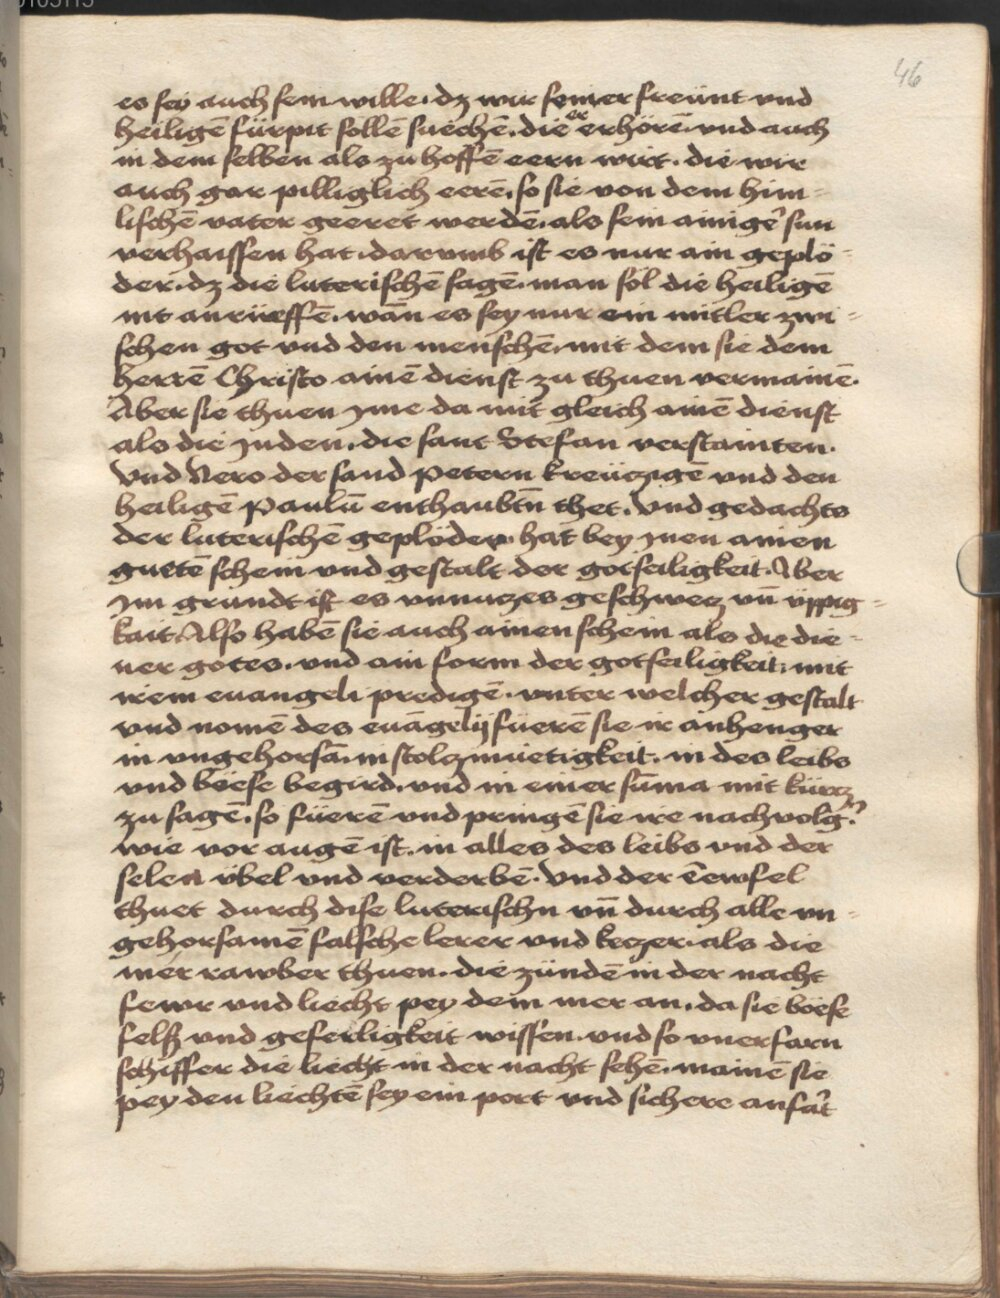 46
es sey auch sein wille. dz wir seiner freünt vnd
heiligē fürpit sollē suechē. die er erhörē. vnd auch
in dem selben als zu hoffē eern wirt. die wir
auch gar pilliglich eerē. so sie von dem him-
lischē vater geeret werdē. als sein ainiger sun
verhaissen hat. darumb ist es nur ain geplö-
der. dz die luterischē sagē. man sol die heiligē
nit anrüeffē. wañ es sey nur ein mitler zwi-
schen got vnd den menschē. mit dem sie dem
herrē Christo ainē dienst zu thuen vermainē.
Aber sie thuen jme da mit gleich ainē dienst
als die juden. die sant Stefan verstainten.
Vnd Nero der sand petern kreüczigē vnd den
heiligē Paulū enthaubtn̄ thet. Vnd gedachts
der luterischē geplöder. hat bey jnen ainen
guetē schein vnd gestalt der gotseiligkeit. Aber
jm grundt ist es vnnuczes geschwecz vn̄ üppig-
kait. Also habē sie auch ainen schein als die die-
ner gotes. vnd ain form der gotseiligkeit. mit
irem euangeli predigē. vnter welcher gestalt
vnd nomē des euāgelij füerē sie ir anhenger
in vngehorsā. in stolczmüetigkeit. in des leibs
vnd böese begird. vnd in einer sūma mit kürcz
zu sagē. so füerē vnd pringē sie ire nachvolger
wie vor augē ist. in alles des leibs vnd der
selen übel vnd verderbē. Vnd der Tewfel
thuet durch dise luterischn vn̄ durch alle vn-
gehorsamē falsche lerer vnd keczer. als die
mer rawber thuen. die zündē in der nacht
fewr vnd liecht pey dem mer an. da sie böese
felß vnd geferligkeit wissen. vnd so vnerfarn
schiffer die liecht in der nacht sehē. mainē sie
pey den liechtē sey ein port vnd sichere anfart